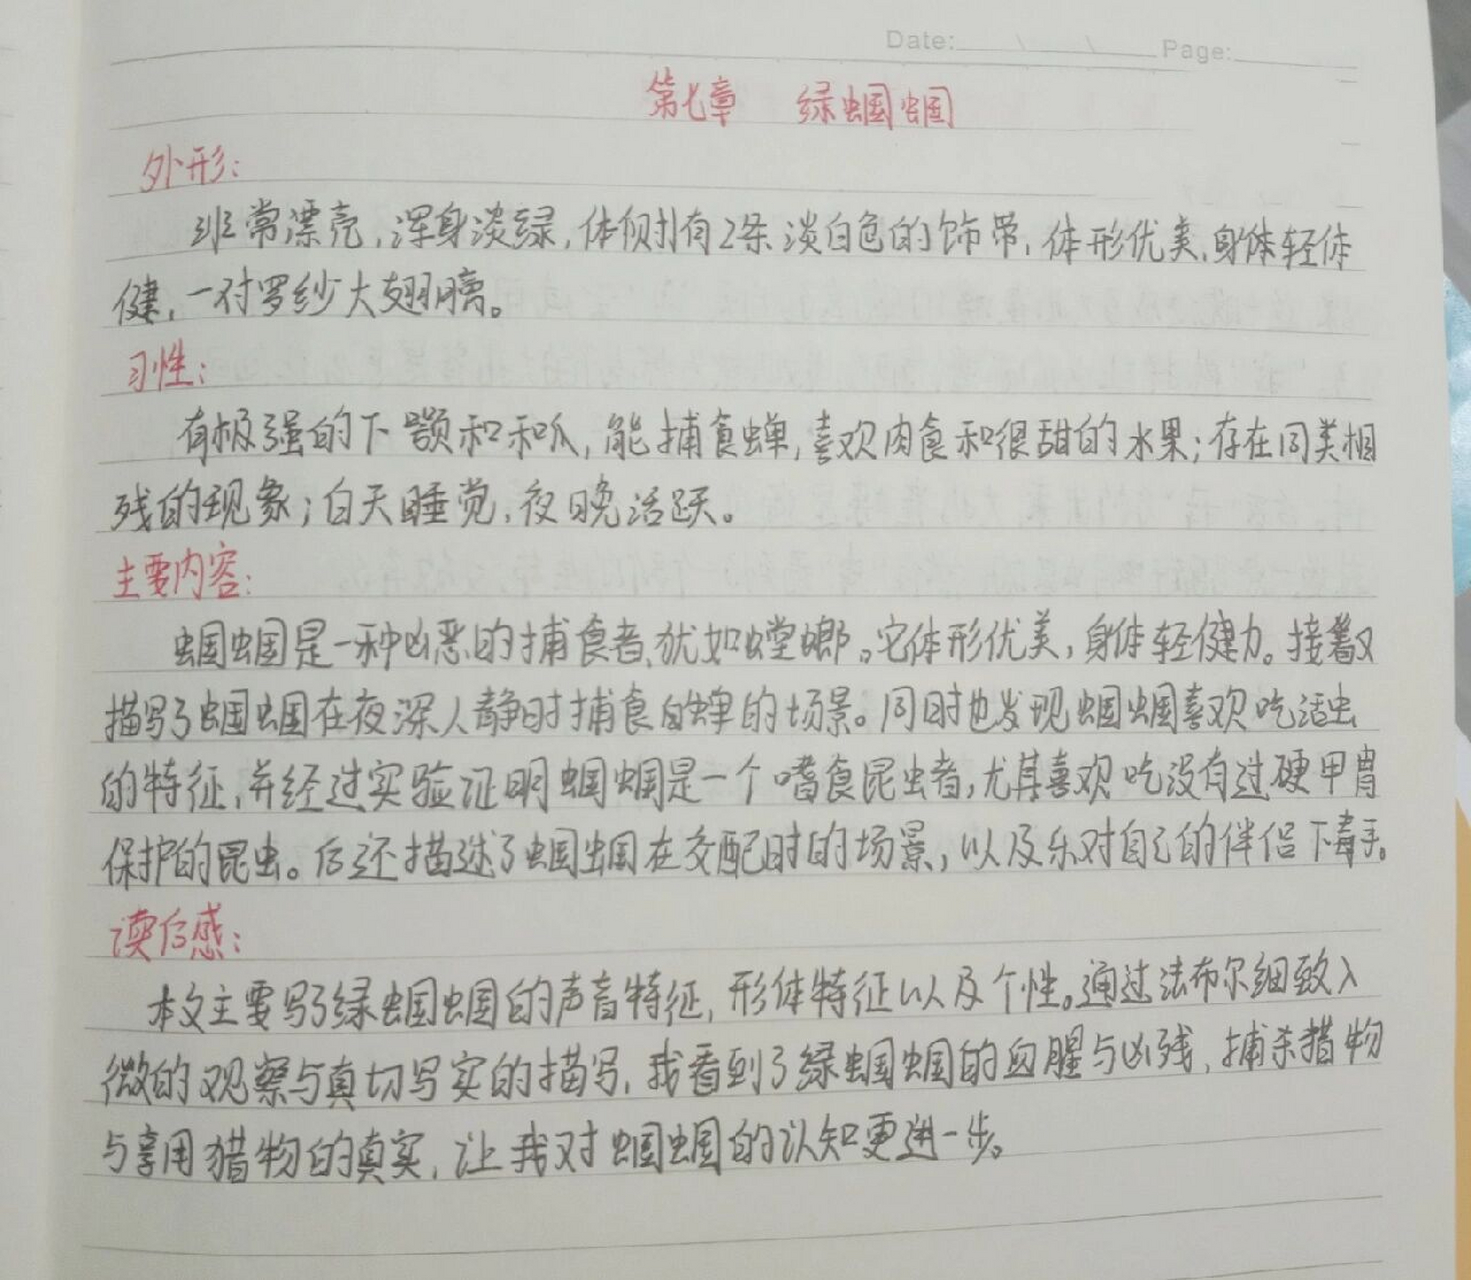 Date: Page:
第七章 绿蝈蝈
外形:
非常漂亮,浑身淡绿,体侧有2条淡白色的饰带,体形优美,身体轻体
健,一对罗纱大翅膀。
习性:
有极强的下颚和和爪,能捕食蝉,喜欢肉食和很甜的水果;存在同类相
残的现象;白天睡觉,夜晚活跃。
主要内容:
蝈蝈是一种凶恶的捕食者,犹如螳螂。它体形优美,身体轻健力。接着又
描写了蝈蝈在夜深人静时捕食白蝉的场景。同时也发现蝈蝈喜欢吃活虫
的特征,并经过实验证明蝈蝈是一个嗜食昆虫者,尤其喜欢吃没有过硬甲胄
保护的昆虫。后还描述了蝈蝈在交配时的场景,以及乐对自己的伴侣下毒手。
读后感:
本文主要写了绿蝈蝈的声音特征,形体特征以及个性。通过法布尔细致入
微的观察与真切写实的描写,我看到了绿蝈蝈的血腥与凶残,捕杀猎物
与享用猎物的真实,让我对蝈蝈的认知更进一步。